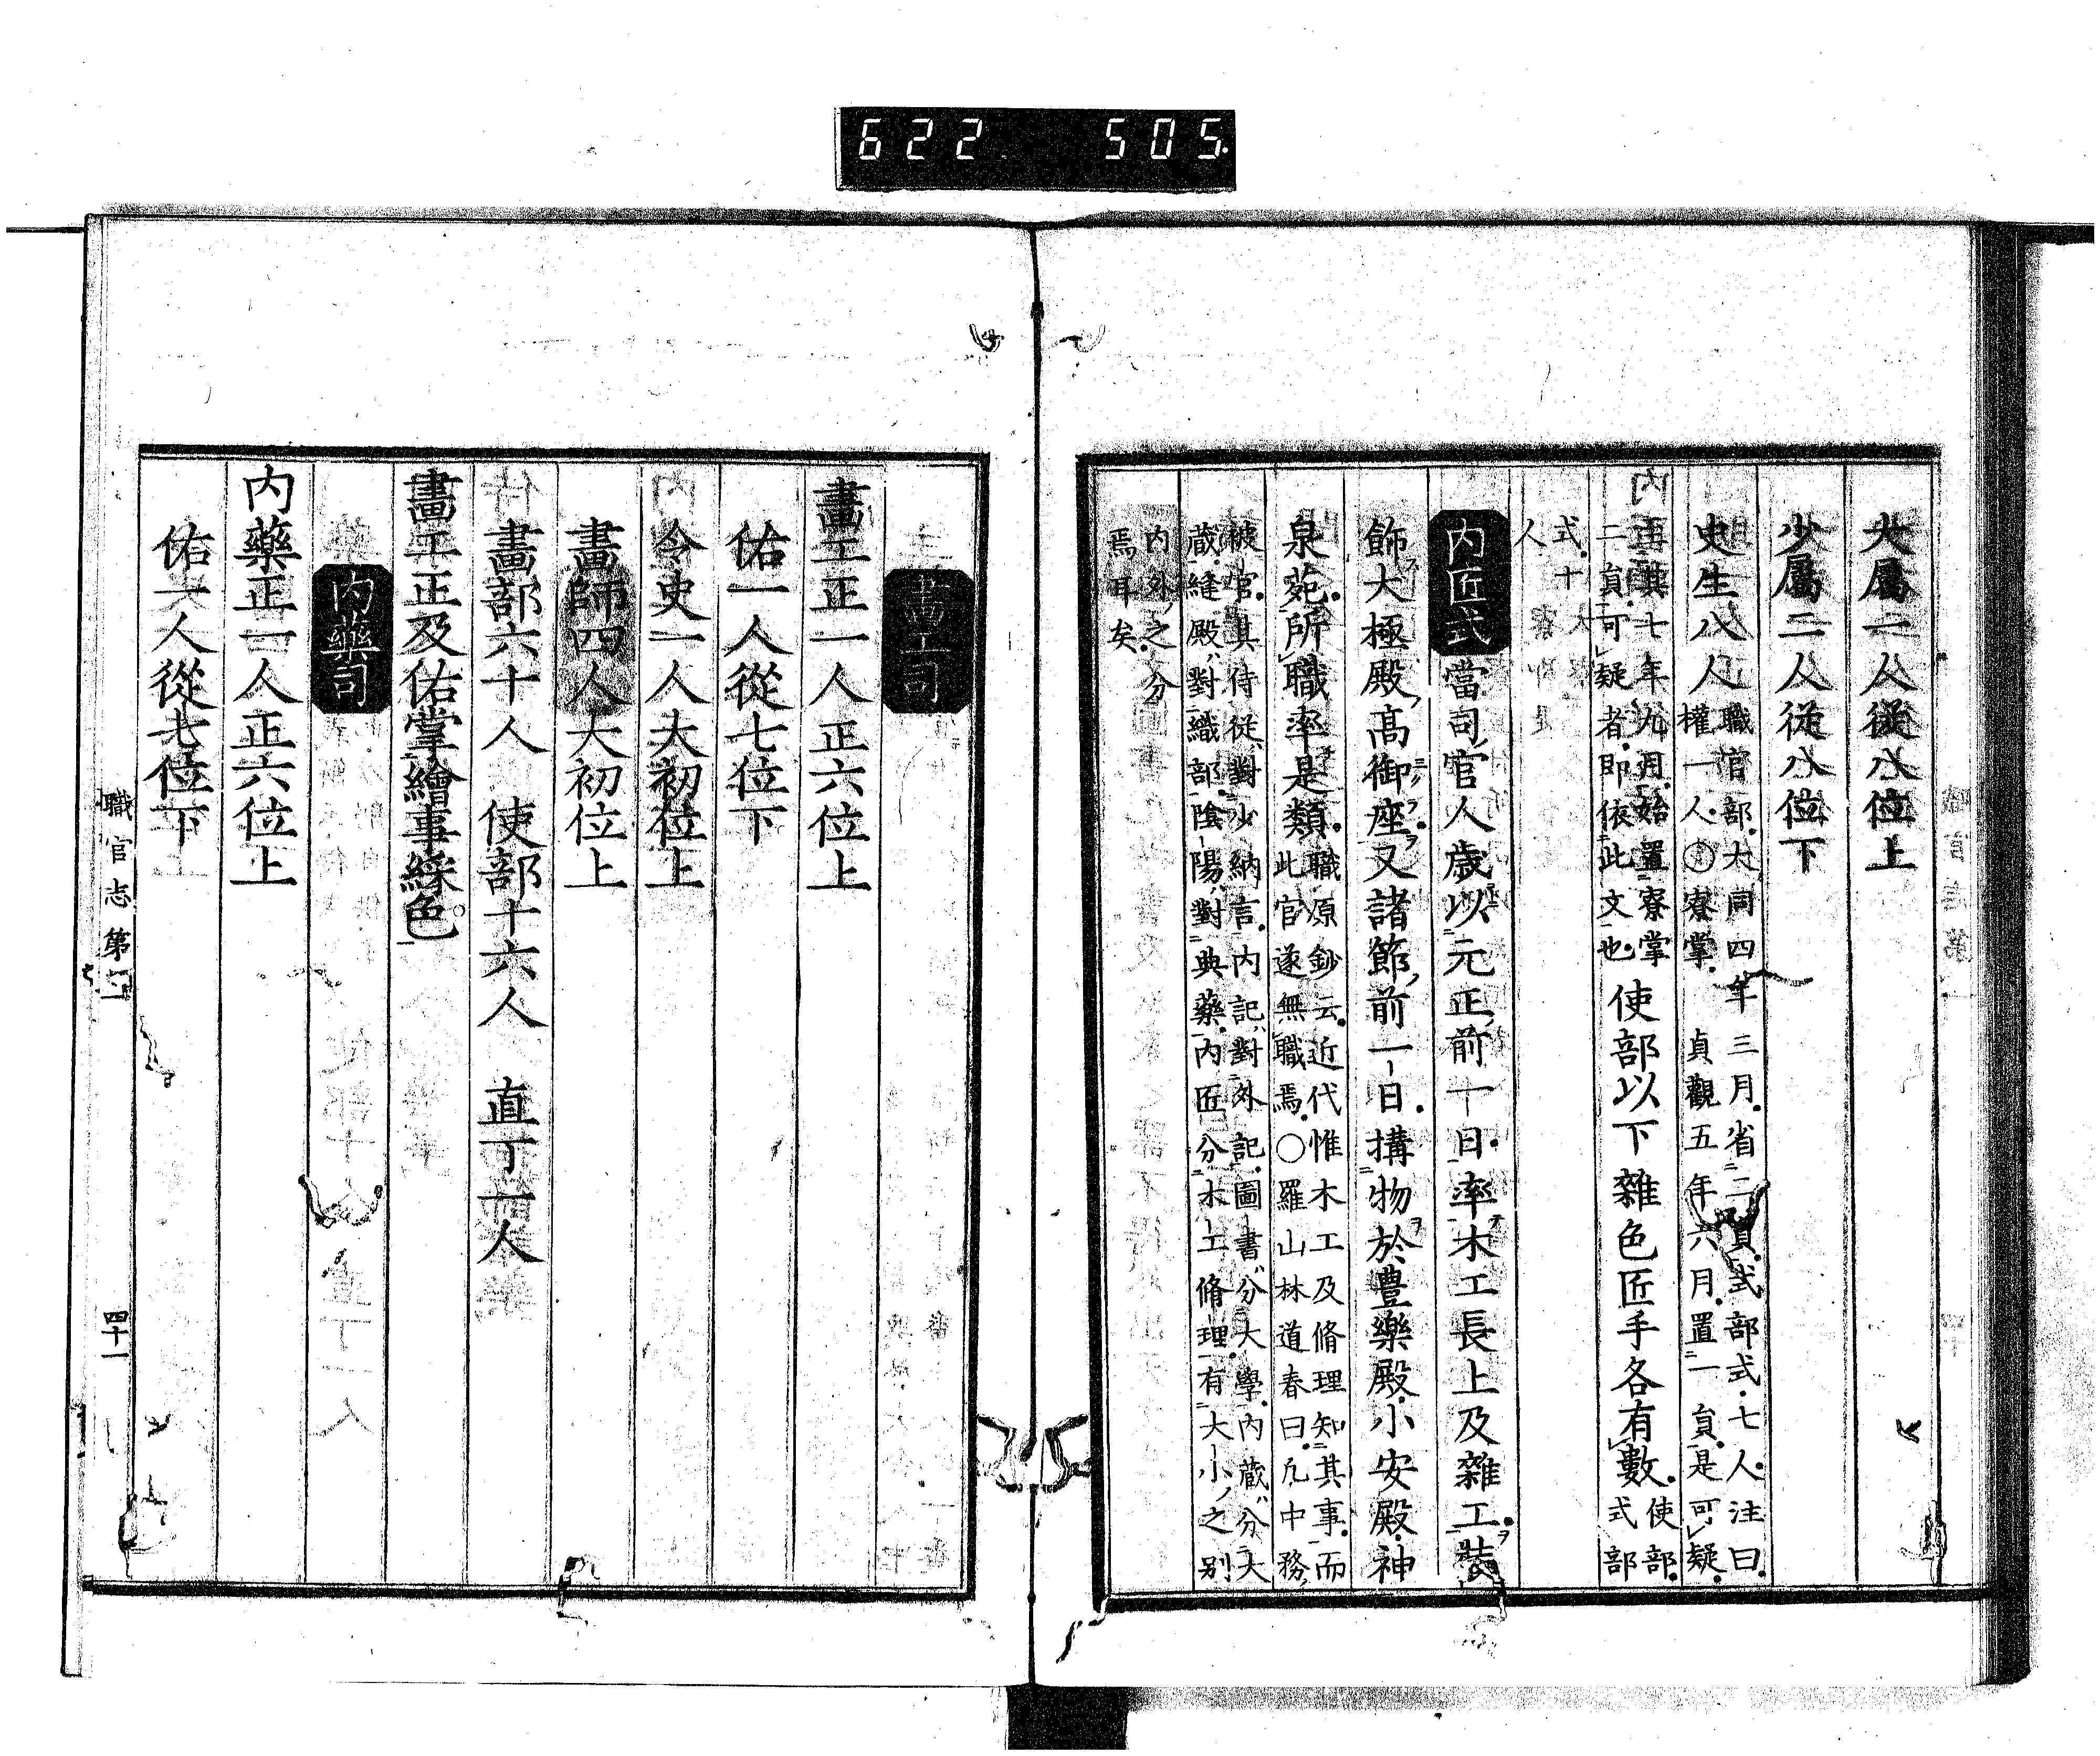 622 505
大屬一人從八位上
少屬二人從八位下
史生八人
職官部大同四年三月省二貟式部式七人注曰
權一人〇寮掌貞觀五年六月置一貟是可疑
再其七年九月始置寮掌
二貟可疑者即依此文也
使部以下雜色匠手各有數
使部
式部
式十
人
内匠式
當司官人歳以元正前一日率木工長上及雜工裝
飾大極殿高御座又諸節前一日搆物於豊樂殿小安殿神
泉苑所職率是類
職原鈔云近代惟木工及脩理知其事而
此官遂無職焉〇羅山林道春曰凡中務
被官其侍從對少納言内記對外記圖書分大學内蔵分大
蔵縫殿對織部陰陽對典藥内匠分木工脩理有大小之别
内外之分
焉耳矣
畫工司
畫工正一人正六位上
佑一人從七位下
令史一人大初位上
畫師四人大初位上
畫部六十人 使部十六人 直丁一人
畫工正及佑掌繪事綵色
内藥司
内藥正一人正六位上
佑一人從七位下
職官志第二
四十一